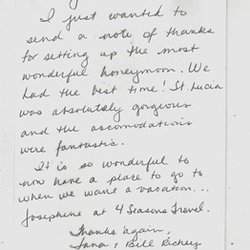 I just wanted to
send a note of thanks
for setting up the most
wonderful honeymoon. We
had the best time! St Lucia
was absolutely gorgeous
and the accomodations
were fantastic.
It is so wonderful to
now have a place to go to
when we want a vacation...
Josephine at 4 Seasons Travel.
Thanks again,
Lana & Bill Richey